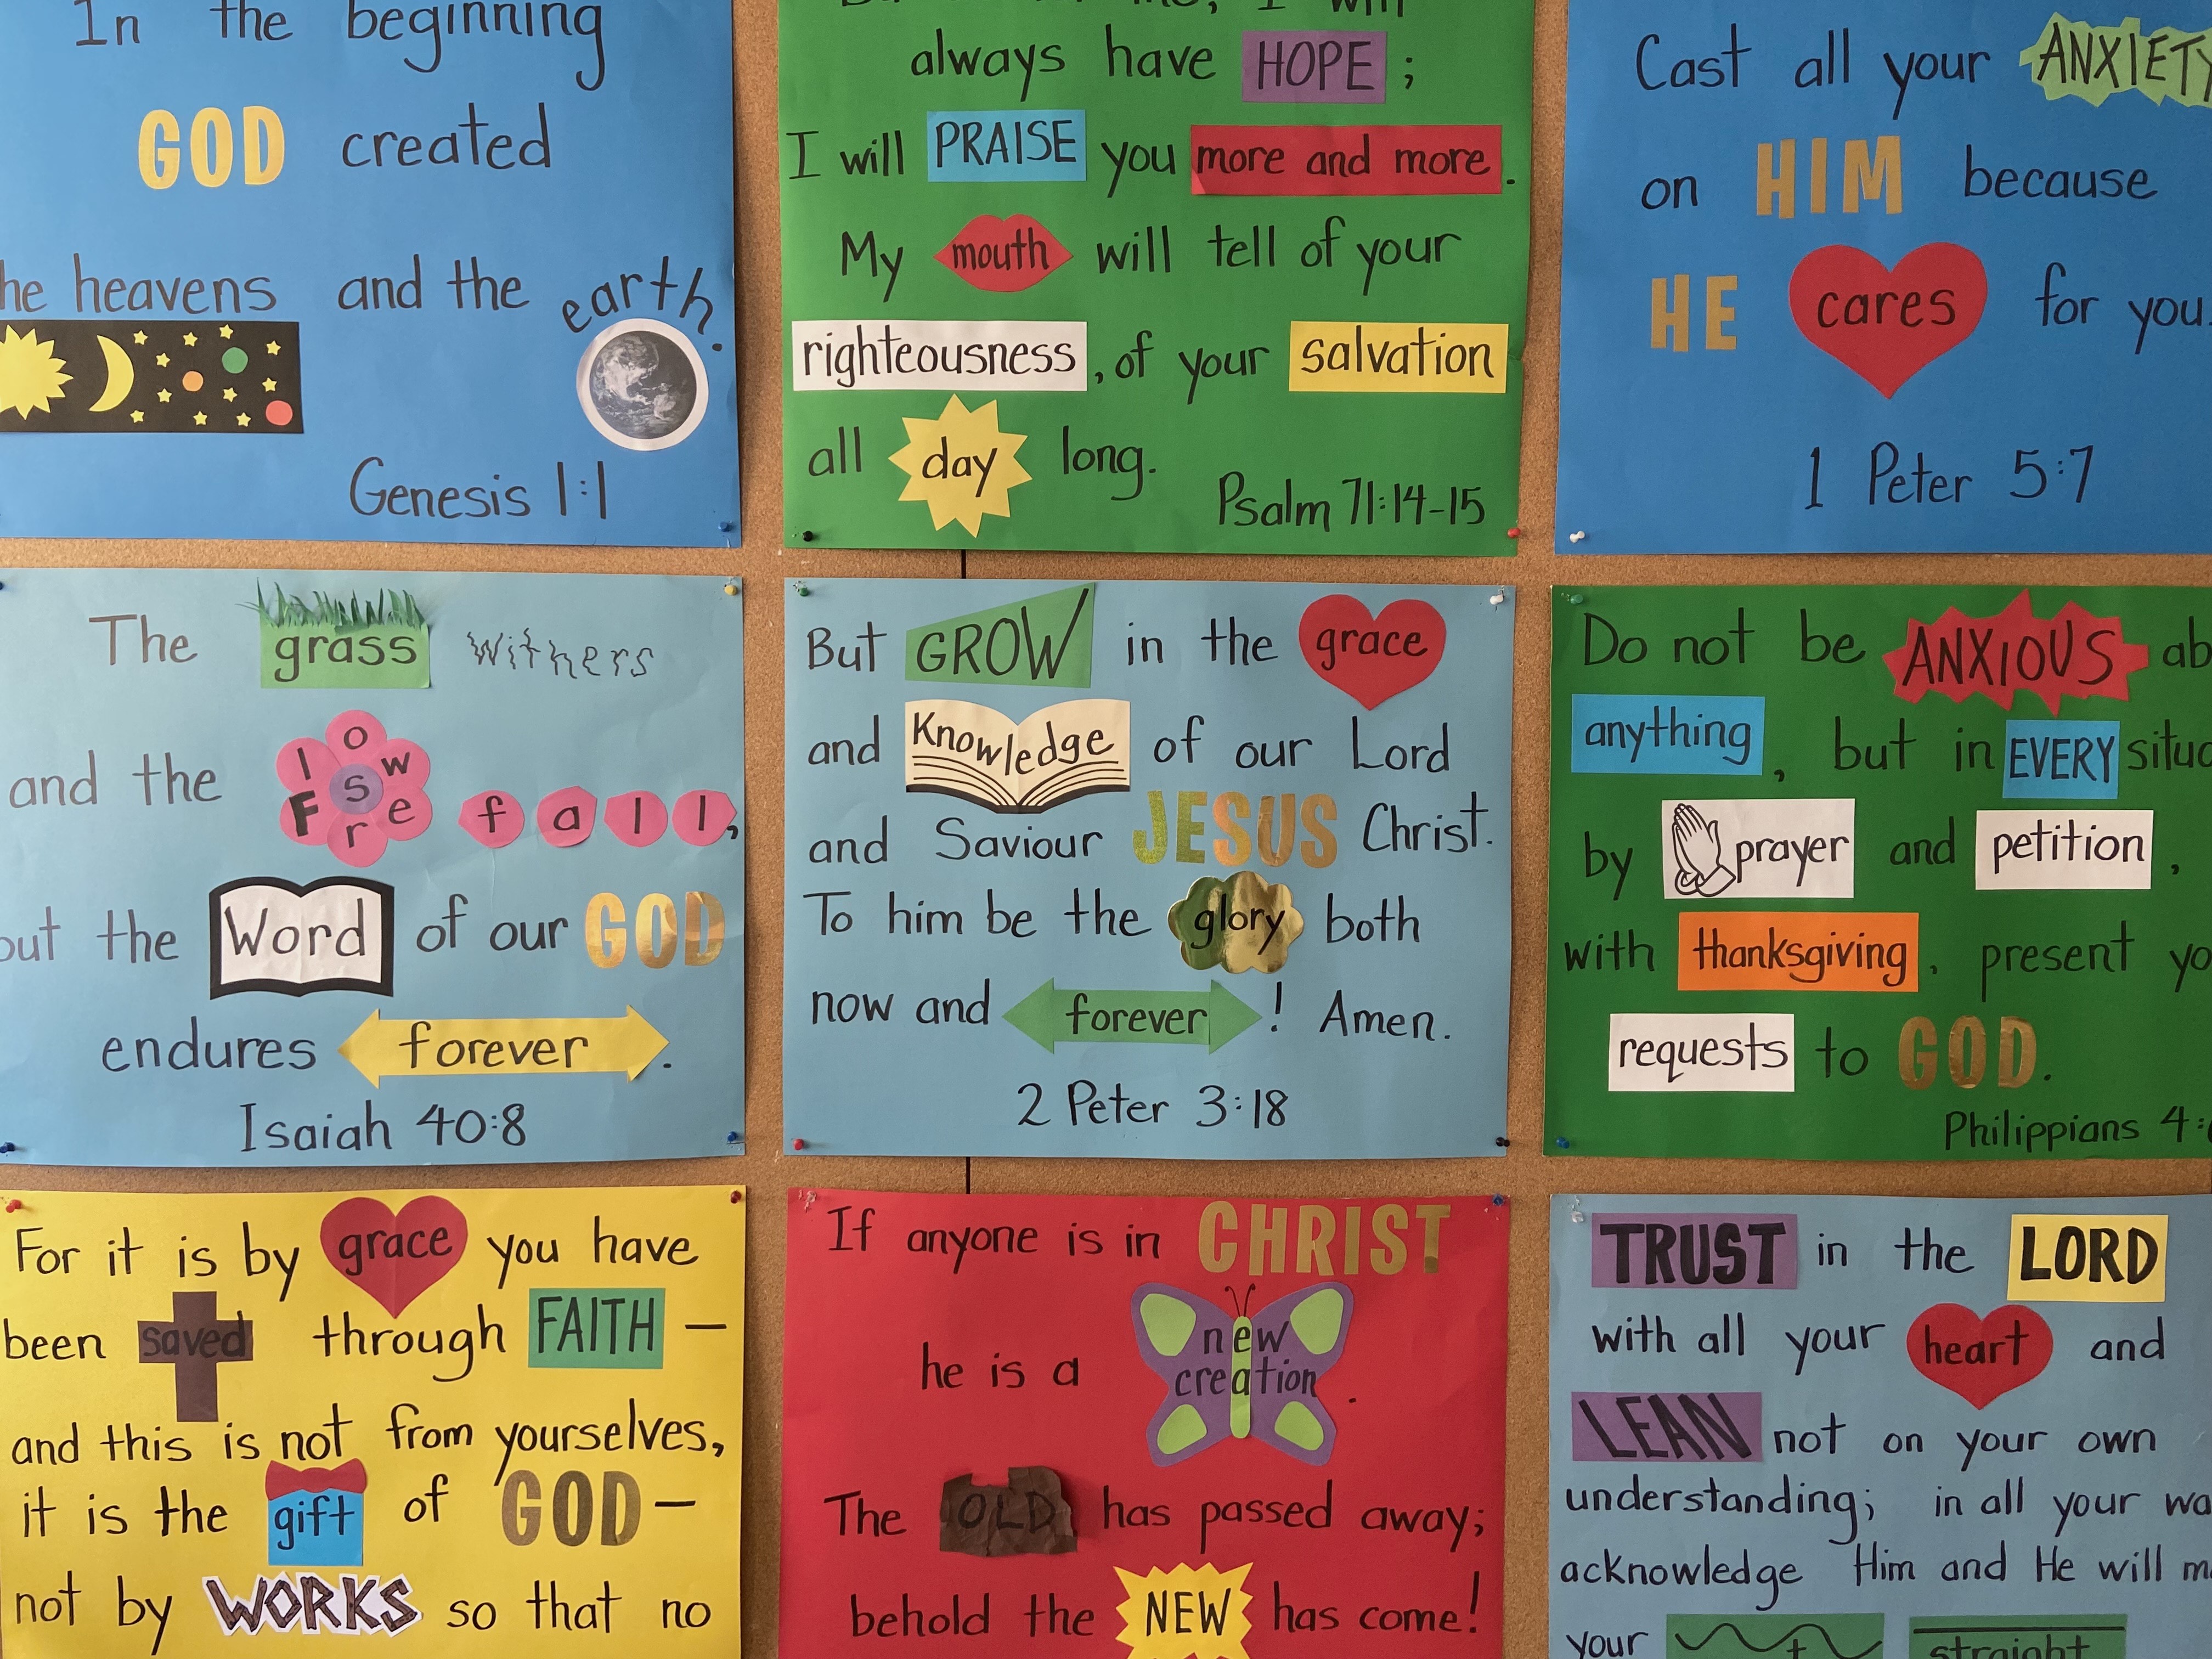 In the beginning
GOD created
he heavens and the earth.
Genesis 1:1
I will
always have HOPE ;
I will PRAISE you more and more.
My mouth will tell of your
righteousness, of your salvation
all day long.
Psalm 71:14-15
Cast all your ANXIETY
on HIM because
HE cares for you.
1 Peter 5:7
The grass withers
and the Flowers fall,
out the Word of our GOD
endures forever.
Isaiah 40:8
But GROW in the grace
and Knowledge of our Lord
and Saviour JESUS Christ.
To him be the glory both
now and forever! Amen.
2 Peter 3:18
Do not be ANXIOUS ab
anything, but in EVERY situa
by prayer and petition,
with thanksgiving, present yo
requests to GOD.
Philippians 4:
For it is by grace you have
been saved through FAITH –
and this is not from yourselves,
it is the gift of GOD –
not by WORKS so that no
If anyone is in CHRIST
he is a new creation.
The OLD has passed away;
behold the NEW has come!
TRUST in the LORD
with all your heart and
LEAN not on your own
understanding; in all your wa
acknowledge Him and He will m
your straight